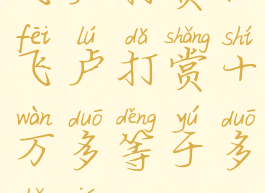 fēi lú dǎ shǎng shí
飞卢打赏十
wàn duō děng yú duō
万多等于多